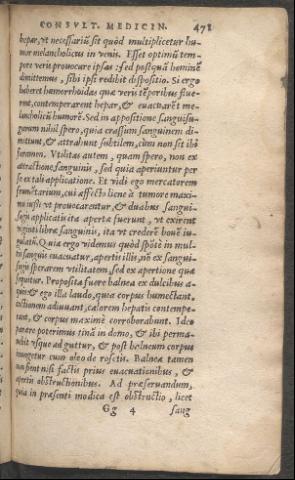 CONSVLT. MEDICIN. 471
hepar, vt necessariũ sit quòd multiplicetur hu-
mor melancholicus in venis. Esset optimũ tem-
pore veris prouocare ipsas: sed postquã hominẽ
dimittemus, sibi ipsi redibit dispositio. Si ergo
haberet hæmorrhoidas quæ veris tẽporibus flue-
rent, contemperarent hepar, & euacuarẽt me-
lancholicũ humorẽ. Sed in appositione sanguisu-
garum nihil spero, quia crassum sanguinem di-
mittunt, & attrahunt subtilem, cùm non sit ibi
foramen. Vtilitas autem, quam spero, non ex
attractione sanguinis, sed quia aperiuntur per
se ex tali applicatione. Et vidi ego mercatorem
frumẽtarium, cui affecto liene à tumore maxi-
mo iussi vt prouocarentur, & duabus sangui-
sugis applicatis ita apertæ fuerunt, vt exirent
viginti libræ sanguinis, ita vt crederẽ bouẽ iu-
gulatũ. Quia ergo videmus quòd spõte in mul-
tis sanguis euacuatur, apertis illis, nõ ex sangui-
sugis sperarem vtilitatem, sed ex apertione quæ
sequitur. Proposita fuere balnea ex dulcibus a-
quis & ego illa laudo, quia corpus humectant,
coctionem adiuuant, calorem hepatis contempe-
rant, & corpus maximè corroborabunt. Ideo
parare poterimus tinã in domo, & ibi perma-
nebit vsque ad guttur, & post balneum corpus
inungetur cum oleo de rosetis. Balnea tamen
non sient nisi factis prius euacuationibus, &
apertis obstructionibus. Ad præseruandum,
quia in præsenti modica est obstructio, licet
Gg 4 sang